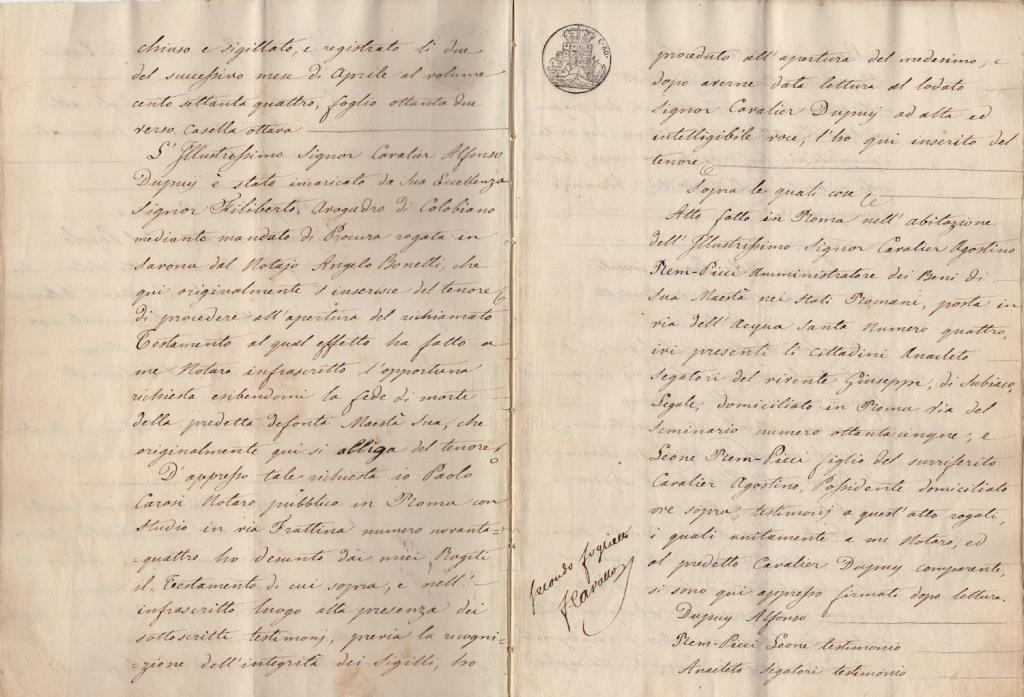 chiuso e sigillato, e registrato li due
del successivo mese di Aprile al volume
cento settanta quattro, foglio ottanta due
verso, casella ottava
L'Illustrissimo Signor Cavalier Alfonso
Dupuij è stato incaricato da Sua Eccellenza
Signor Filiberto Avogadro di Colobiano
mediante mandato di Procura rogata in
Savona dal Notajo Angelo Bonelli, che
qui originalmente s'inserisce del tenore
di procedere all'apertura del richiamato
Testamento al qual effetto ha fatto a
me Notaro infrascritto l'opportuna
richiesta esibendomi la fede di morte
della predetta defonta Maestà Sua, che
originalmente qui si alliga del tenore
D'appresso tale richiesta io Paolo
Carosi Notaro pubblico in Roma con
studio in via Frattina numero novanta=
=quattro ho desunto dai miei Rogiti
il Testamento di cui sopra, e nell'
infrascritto luogo alla presenza dei
sottoscritti testimonj, previa la ricogni=
=zione dell'integrità dei Sigilli, ho
proceduto all'apertura del medesimo, e
dopo averne data lettura al lodato
Signor Cavalier Dupuij ad alta ed
intelligibile voce, l'ho qui inserito del
tenore
Sopra le quali cose
Atto fatto in Roma nell'abitazione
dell'Illustrissimo Signor Cavalier Agostino
Rem-Picci Amministratore dei Beni di
Sua Maestà nei Stati Romani, posta in
via dell'Acqua Santa Numero quattro,
ivi presenti li cittadini Anacleto
Segatori del vivente Giuseppe, di Subiaco,
Legale, domiciliato in Roma via del
Seminario numero ottantacinque, e
Leone Rem-Picci figlio del surriferito
Cavalier Agostino, Possidente domiciliato
ove sopra testimonj a quest'atto rogati,
i quali unitamente a me Notaro, ed
al predetto Cavalier Dupuy comparente,
si sono qui appresso firmati dopo lettura.
Dupuy Alfonso
Rem-Picci Leone testimonio
Anacleto Segatori testimonio
secondo foglietto
Cavallo